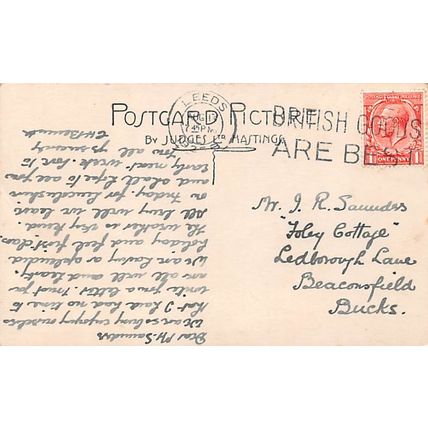 POSTCARD PICTURE
BY JUDGES LTD HASTINGS
LEEDS
BRITISH GOODS
ARE BEST
ONE PENNY
Mr. J. R. Saunders
"Foley Cottage"
Ledborough Lane
Beaconsfield
Bucks.
Dear Mr. Saunders
We are so busy enjoying ourselves
that I have had no time to
write you a letter. Trust you
are all well and hearty
We are having a splendid
holiday and feel first class.
The weather is very kind.
All being well we leave
on Friday for Lincolnshire
and shall hope to see you
early next week. Love to
you all
yrs sincerely